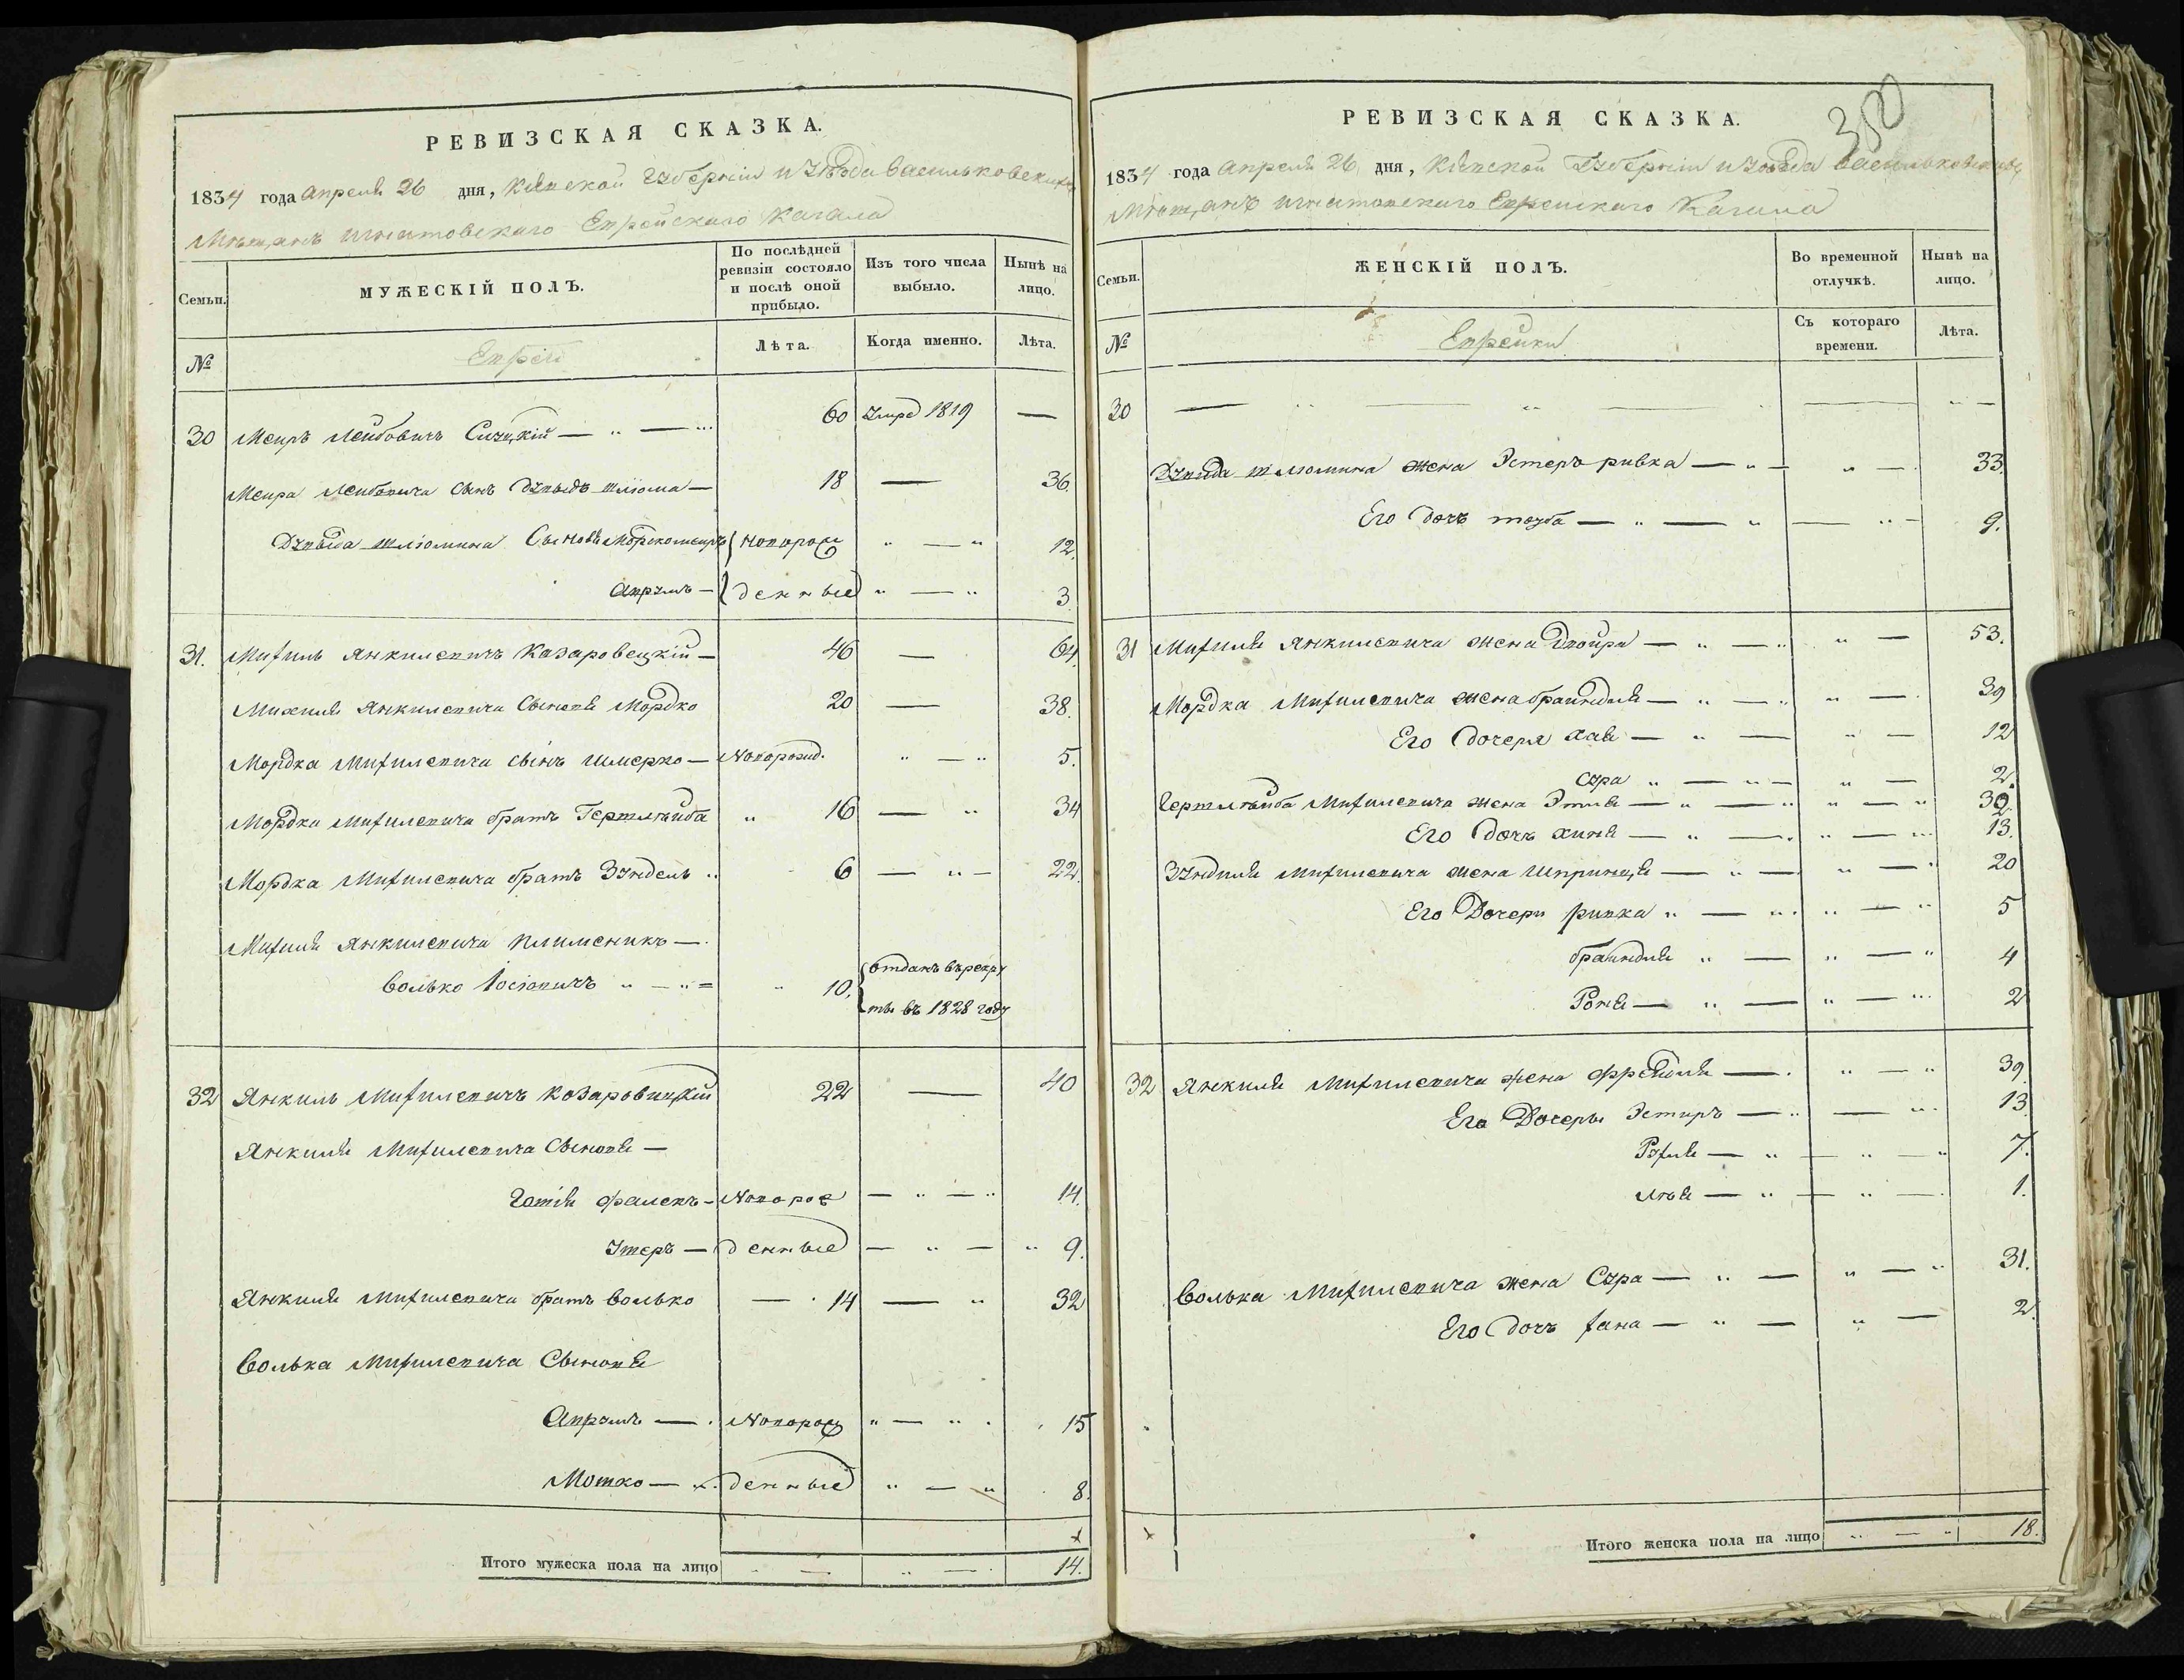 РЕВИЗСКАЯ СКАЗКА.
1834 года Апреля 26 дня, Кіевской Губерніи и Уѣзда Васильковскаго
Мѣщанъ Игнатовскаго Еврейскаго Кагала
Семьи.
МУЖЕСКІЙ ПОЛЪ.
По послѣдней ревизіи состояло и послѣ оной прибыло.
Изъ того числа выбыло.
Нынѣ на лицо.
№
Евреи
Лѣта.
Когда именно.
Лѣта.
30 Меиръ Лейбовичъ Сичускій — 60 Умре 1819 —
Меира Лейбовича сынъ Дувыдъ Шлюома — 18 — 36.
Дувыда Шлюомина Сыновья Мордкомеиръ новорож 12.
Аврумъ — денные 3
31. Михиль Янкилевичъ Казаровецкій — 46 — 64.
Михиля Янкилевича Сыновя Мордко 20 — 38.
Мордка Михилевича сынъ Шмерко — Новорожд. 5.
Мордка Михилевича братъ Гершлейба 16 — 34
Мордка Михилевича братъ Зундель 6 — 22.
Михиля Янкилевича племеникъ —
Волько Іосіовичъ 10. отданъ въ рекру
ты въ 1828 году
32 Янкиль Михилевичъ Козаровицкій 22 — 40
Янкиля Михилевича Сыновя —
Фалекъ — Новорож — 14.
Утеръ — денные — 9.
Янкиля Михилевича братъ Волько — 14 — 32
Волька Михилевича Сыновя
Аврумъ — Новорож 15
Мотко — денные 8.
Итого мужеска пола на лицо 14.
350
РЕВИЗСКАЯ СКАЗКА.
1834 года Апреля 26 дня, Кіевской Губерніи и Уѣзда Васильковскаго
Мѣщанъ Игнатовскаго Еврейскаго Кагала
Семьи.
ЖЕНСКІЙ ПОЛЪ.
Во временной отлучкѣ.
Нынѣ на лицо.
№
Еврейки
Съ котораго времени.
Лѣта.
30
Дувида Шлюомина жена Эстеръ ривка — 33.
Его дочь тоуба — 9.
31 Михиля Янкилевича жена Двойра — 53.
Мордка Михилевича жена брайндля — 39
Его дочеря хая — 12
Сура — 2.
Гершлейба Михилевича жена Этля — 32.
Его дочь хиня — 13.
Зундиля Михилевича жена Шпринця — 20
Его Дочери ривка — 5
брайндля — 4
Роня — 2
32 Янкиля Михилевича жена Фрейдля — 39.
Его Дочеры Эстиръ — 13.
Рухля — 7.
Лѣя — 1.
Волька Михилевича жена Сура — 31.
Его дочъ хана — 2.
Итого женска пола на лицо 18.